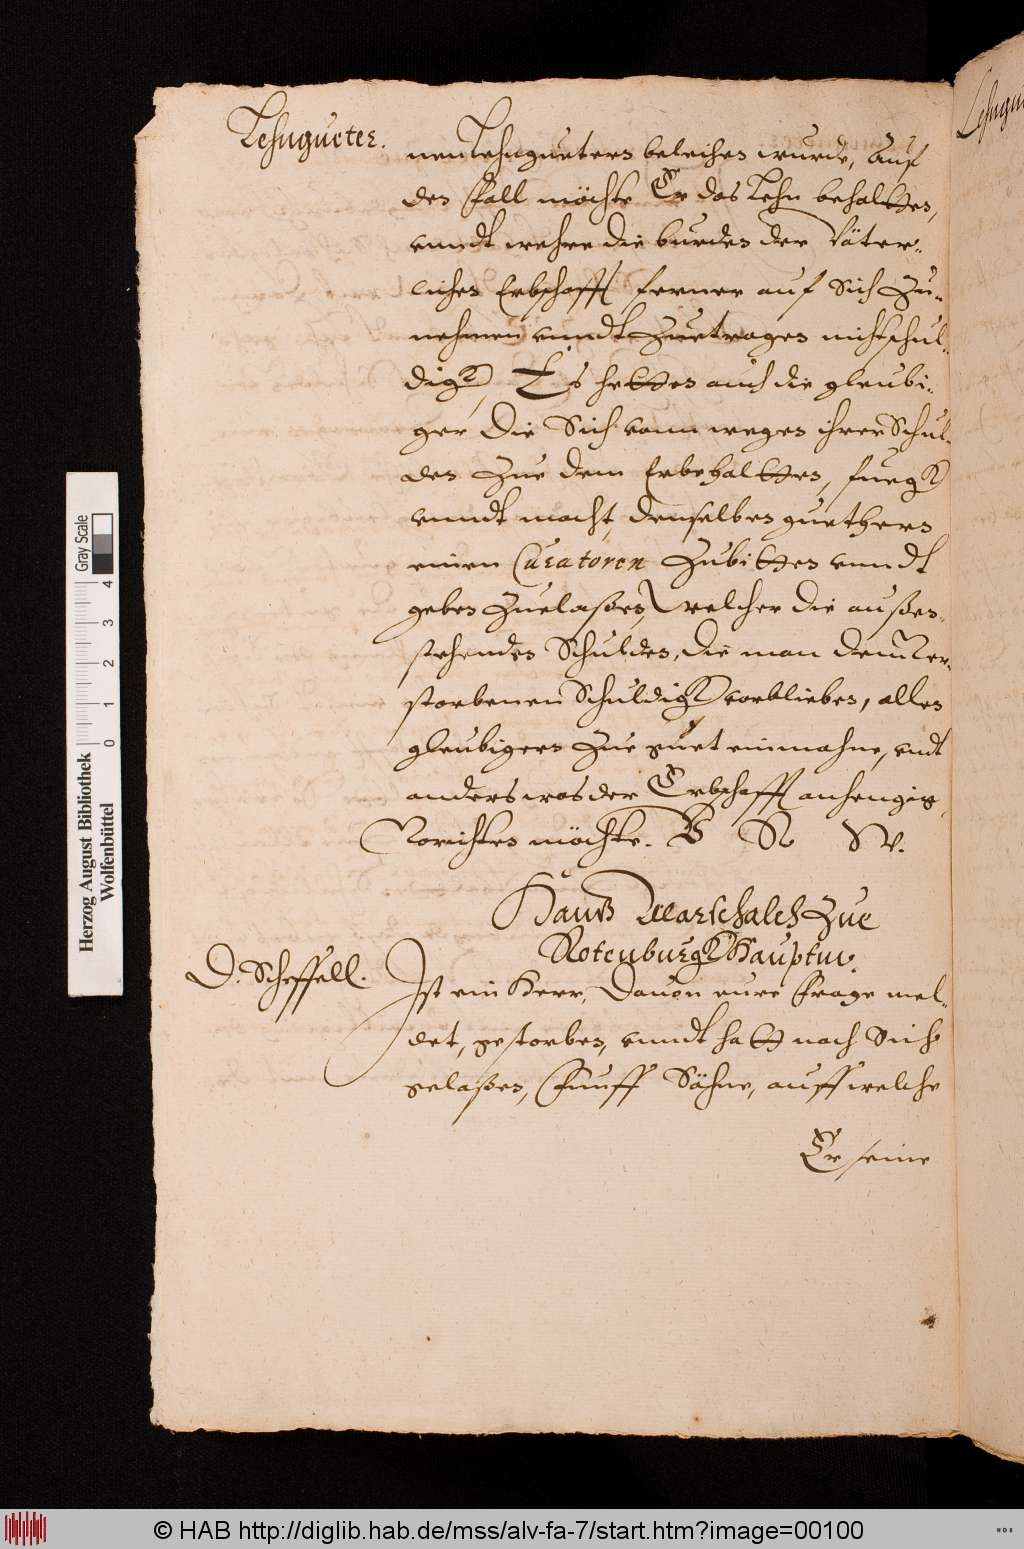 Lehngueter.
nen Lehngueters beleihen wurde, Auf
den Fall möchte Er das Lehn behaltten,
vnndt wehre die burden der Väter-
lichen Erbschafft ferner auf Sich Zu-
nehmen vnndt Zuetragen nicht schul-
digk, Es hetten auch die gleubi-
ger Die Sich vonn wegen ihrer Schul-
den Zue dem Erbe haltten, fuegk
vnndt macht, denselben guethern
einen Curatoren Zubitten vnndt
geben Zuelaßen, welcher die außen-
stehenden Schulden, die man dem Ver-
storbenen Schuldigk vorblieben, allen
gleubigern Zue guet einmahne, vndt
anders was der Erbschafft anhengig,
Vorichten möchte. V R W.
Hanß Marschalch Zue
Rotenburgk Hauptm.
D. Scheffell.
Ist ein Herr, Dauon eure Frage mel-
det, gestorben, vnndt hatt nach Sich
gelaßen, Funff Söhne, auff welche
Er seine
Lehngu
Herzog August Bibliothek
Wolfenbüttel
Gray Scale
0 1 2 3 4
© HAB http://diglib.hab.de/mss/alv-fa-7/start.htm?image=00100